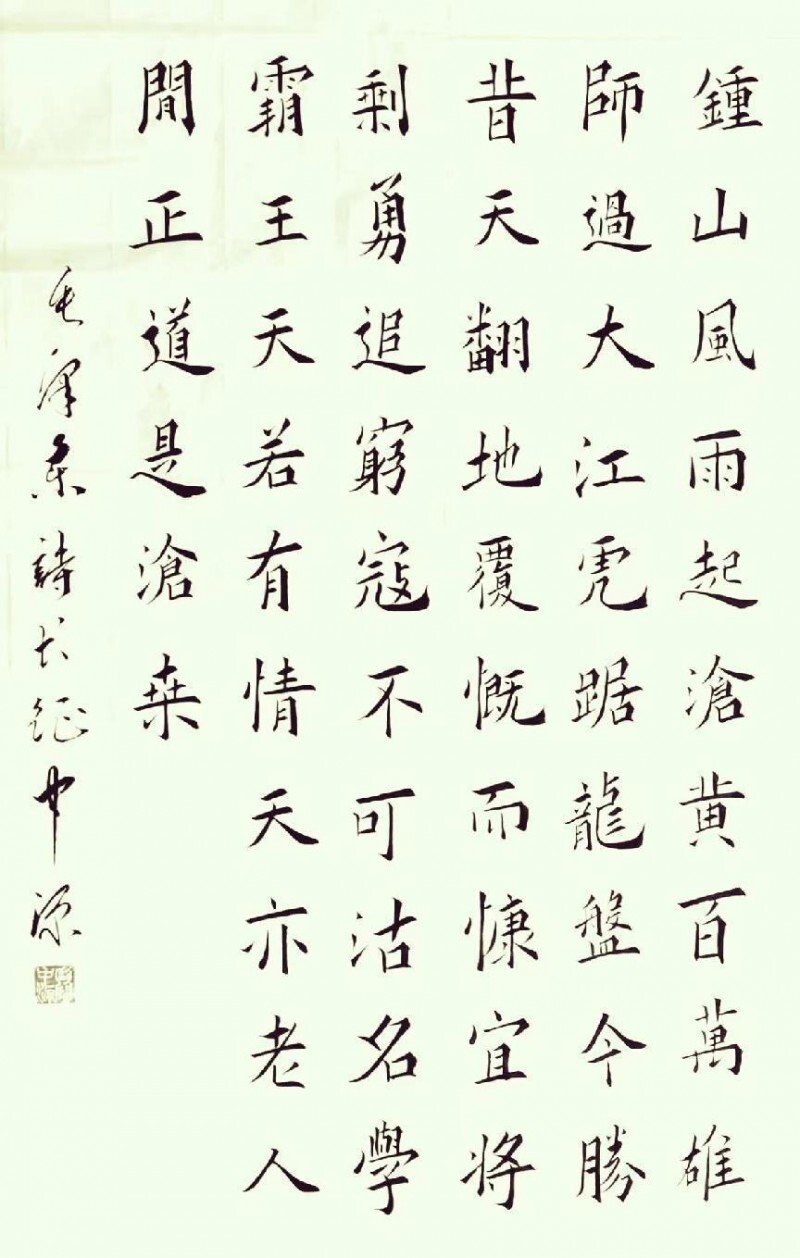 鍾山風雨起滄黄百萬雄
師過大江虎踞龍盤今勝
昔天翻地覆慨而慷宜將
剩勇追窮寇不可沽名學
霸王天若有情天亦老人
間正道是滄桑
毛澤東詩长征中源